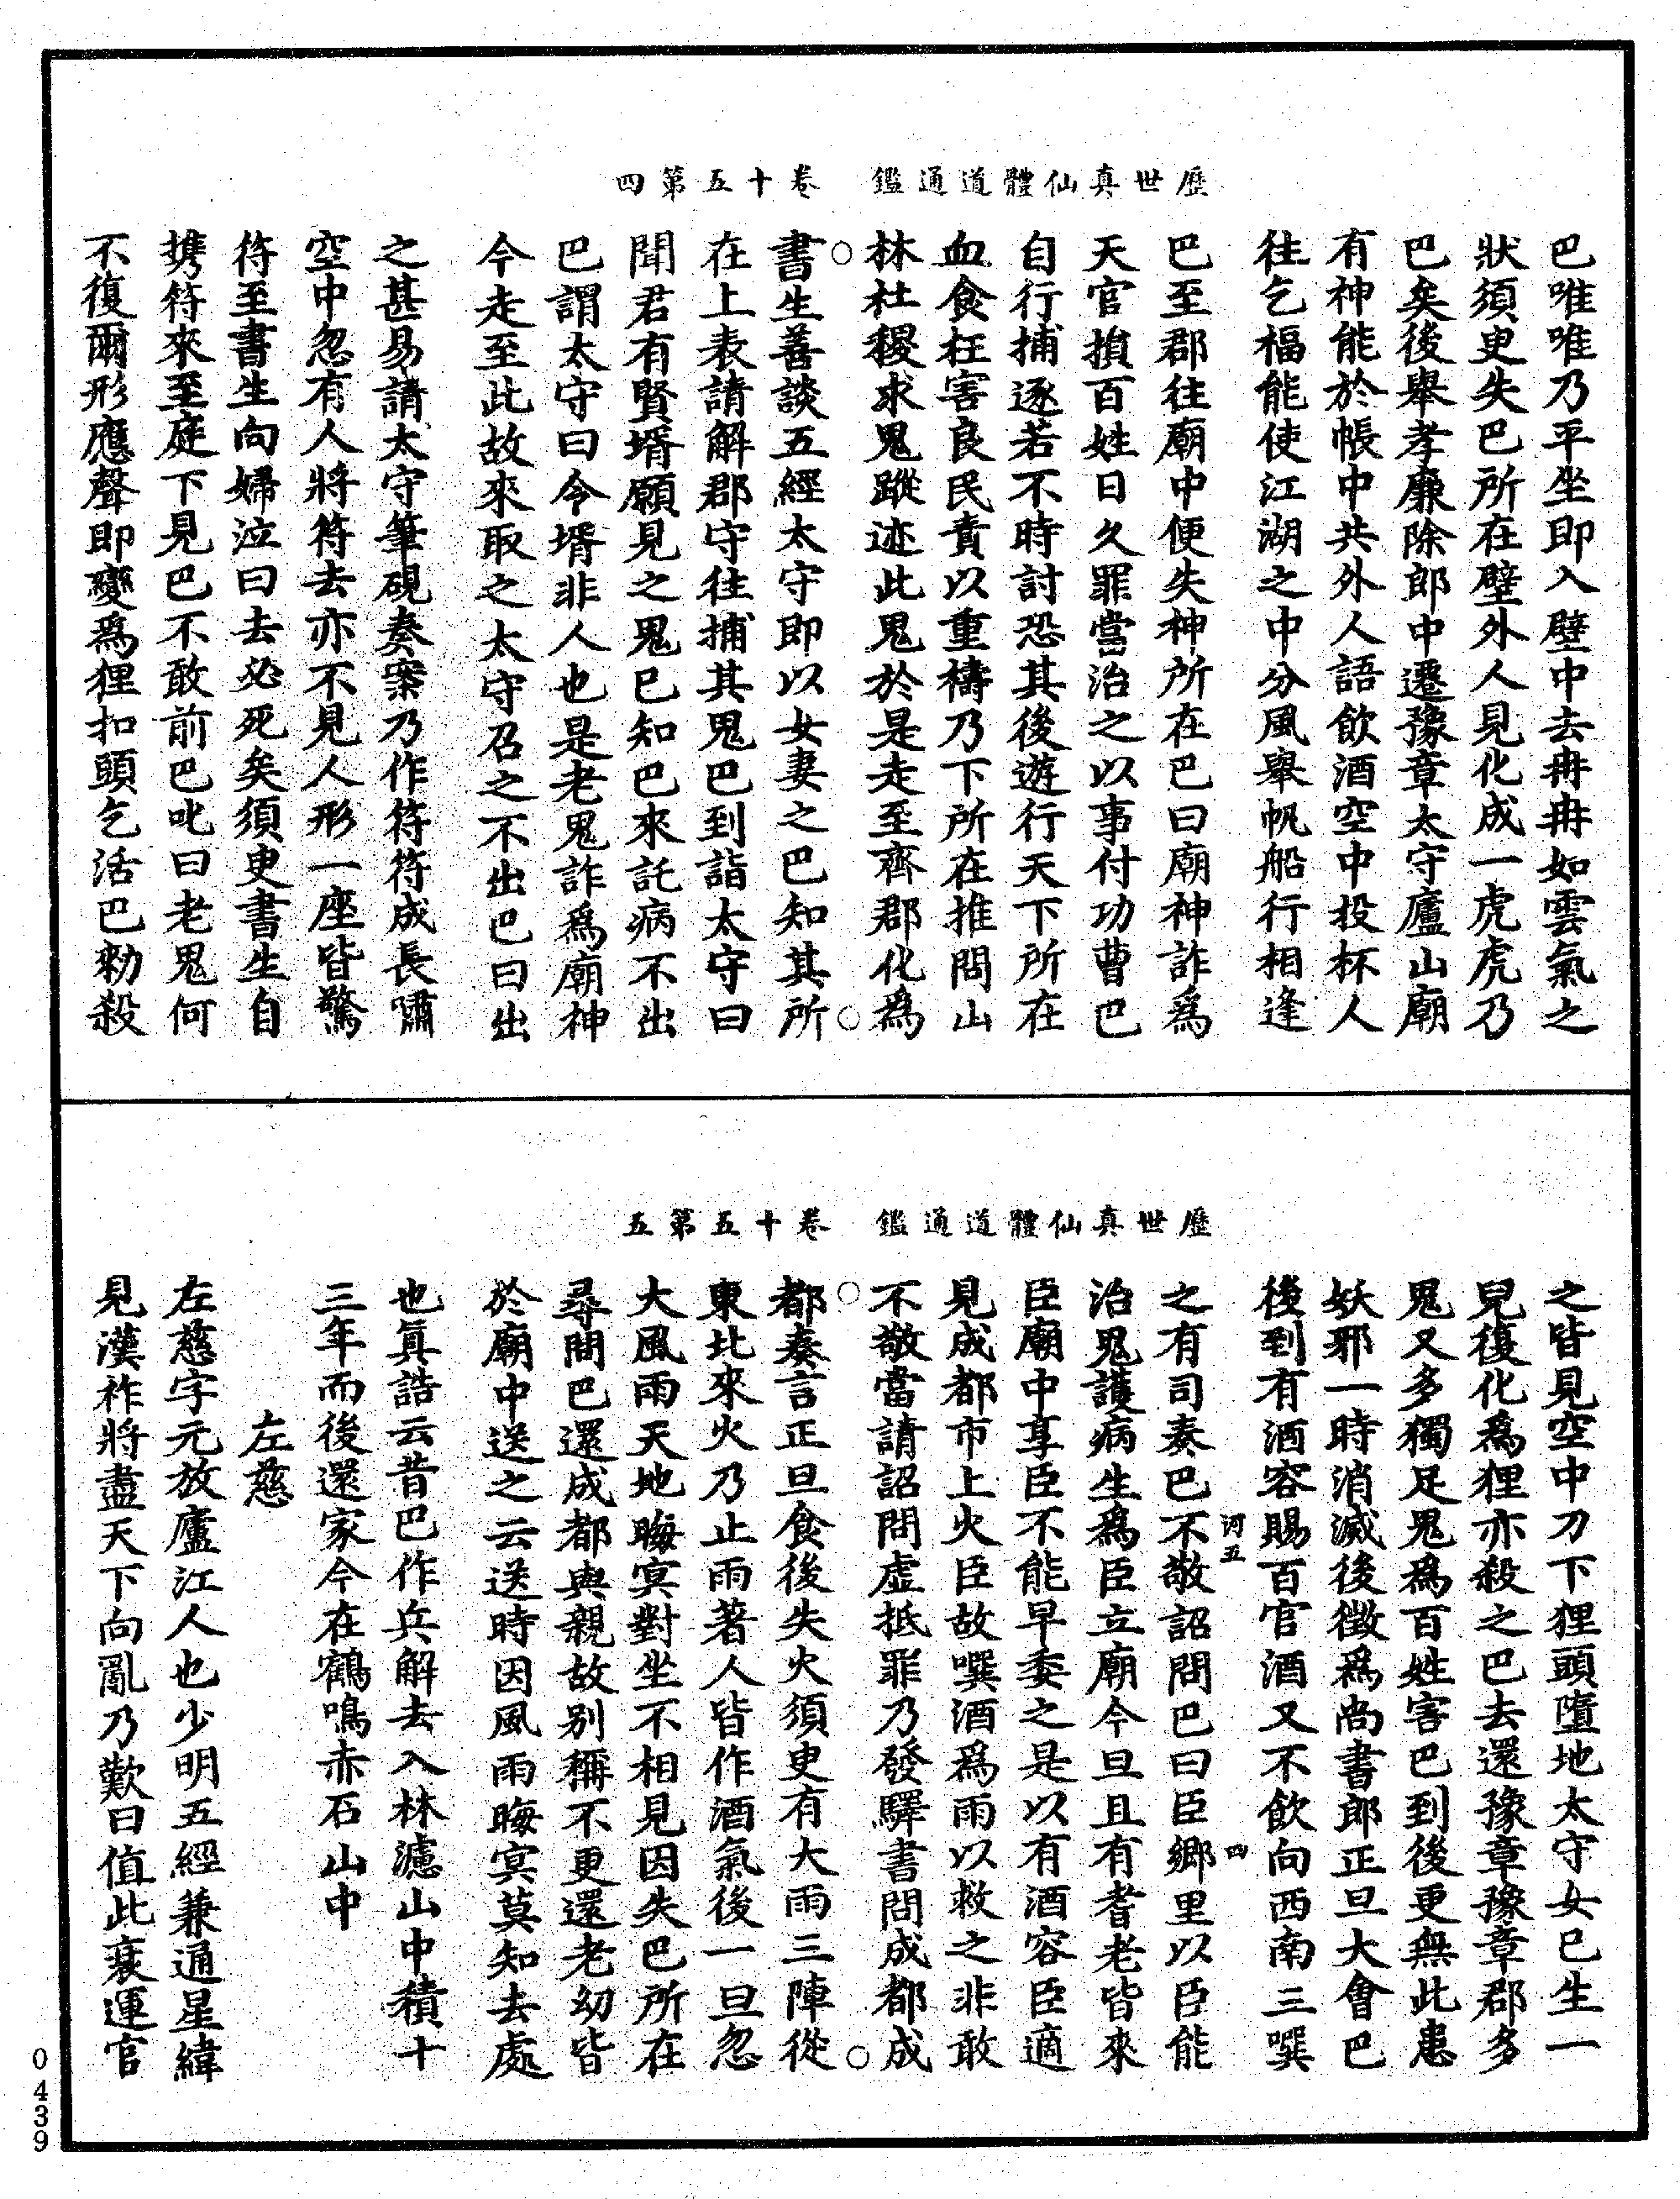 歷世真仙體道通鑑　卷十五第四
巴唯唯乃平坐即入壁中去冉冉如雲氣之
狀須臾失巴所在壁外人見化成一虎虎乃
巴矣後舉孝廉除郎中遷豫章太守廬山廟
有神能於帳中共外人語飲酒空中投杯人
往乞福能使江湖之中分風舉帆船行相逢
巴至郡往廟中便失神所在巴曰廟神詐爲
天官損百姓日久罪當治之以事付功曹巴
自行捕逐若不時討恐其後遊行天下所在
血食枉害良民責以重禱乃下所在推問山
林社稷求鬼蹤迹此鬼於是走至齊郡化爲
書生善談五經太守即以女妻之巴知其所
在上表請解郡守往捕其鬼巴到詣太守曰
聞君有賢壻願見之鬼已知巴來託病不出
巴謂太守曰令壻非人也是老鬼詐爲廟神
今走至此故來取之太守召之不出巴曰出
之甚易請太守筆硯奏案乃作符符成長嘯
空中忽有人將符去亦不見人形一座皆驚
符至書生向婦泣曰去必死矣須臾書生自
携符來至庭下見巴不敢前巴叱曰老鬼何
不復爾形應聲即變爲狸扣頭乞活巴勑殺
歷世真仙體道通鑑　卷十五第五
之皆見空中刀下狸頭墮地太守女已生一
兒復化爲狸亦殺之巴去還豫章豫章郡多
鬼又多獨足鬼爲百姓害巴到後更無此患
妖邪一時消滅後徵爲尚書郎正旦大會巴
後到有酒容賜百官酒又不飲向西南三噀
訶五　四
之有司奏巴不敬詔問巴曰臣鄉里以臣能
治鬼護病生爲臣立廟今旦且有耆老皆來
臣廟中享臣不能早委之是以有酒容臣適
見成都市上火臣故噀酒爲雨以救之非敢
不敬當請詔問虛抵罪乃發驛書問成都成
都奏言正旦食後失火須臾有大雨三陣從
東北來火乃止雨著人皆作酒氣後一旦忽
大風雨天地晦冥對坐不相見因失巴所在
尋問巴還成都與親故別稱不更還老幼皆
於廟中送之云送時因風雨晦冥莫知去處
也真誥云昔巴作兵解去入林濾山中積十
三年而後還家今在鶴鳴赤石山中
左慈
左慈字元放廬江人也少明五經兼通星緯
見漢祚將盡天下向亂乃歎曰值此衰運官
0439